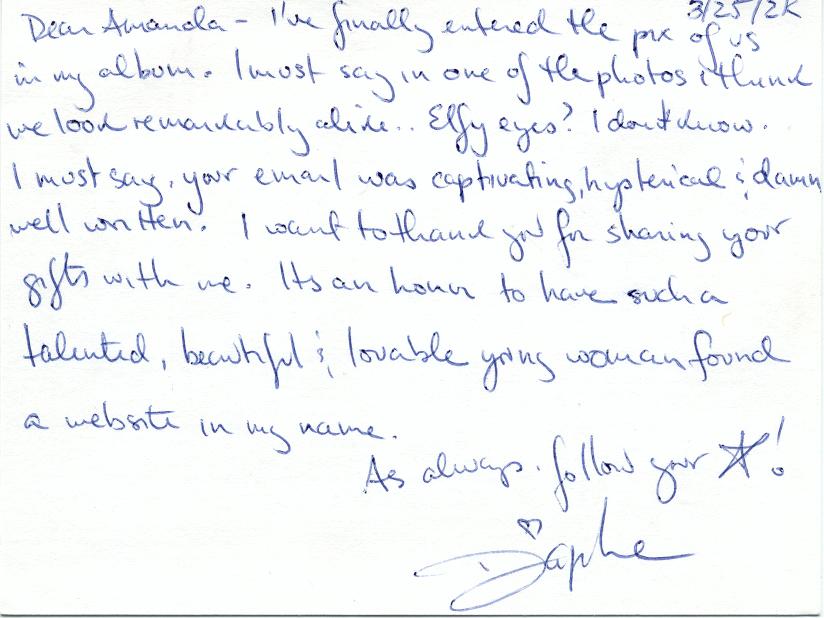 3/25/2K
Dear Amanda - I've finally entered the pix of us
in my album. I must say in one of the photos i think
we look remarkably alike.. Elfy eyes? I don't know.
I must say, your email was captivating, hysterical & damn
well written. I want to thank you for sharing your
gifts with me. Its an honor to have such a
talented, beautiful & lovable young woman found
a website in my name.
As always. follow your ☆!
Daphne